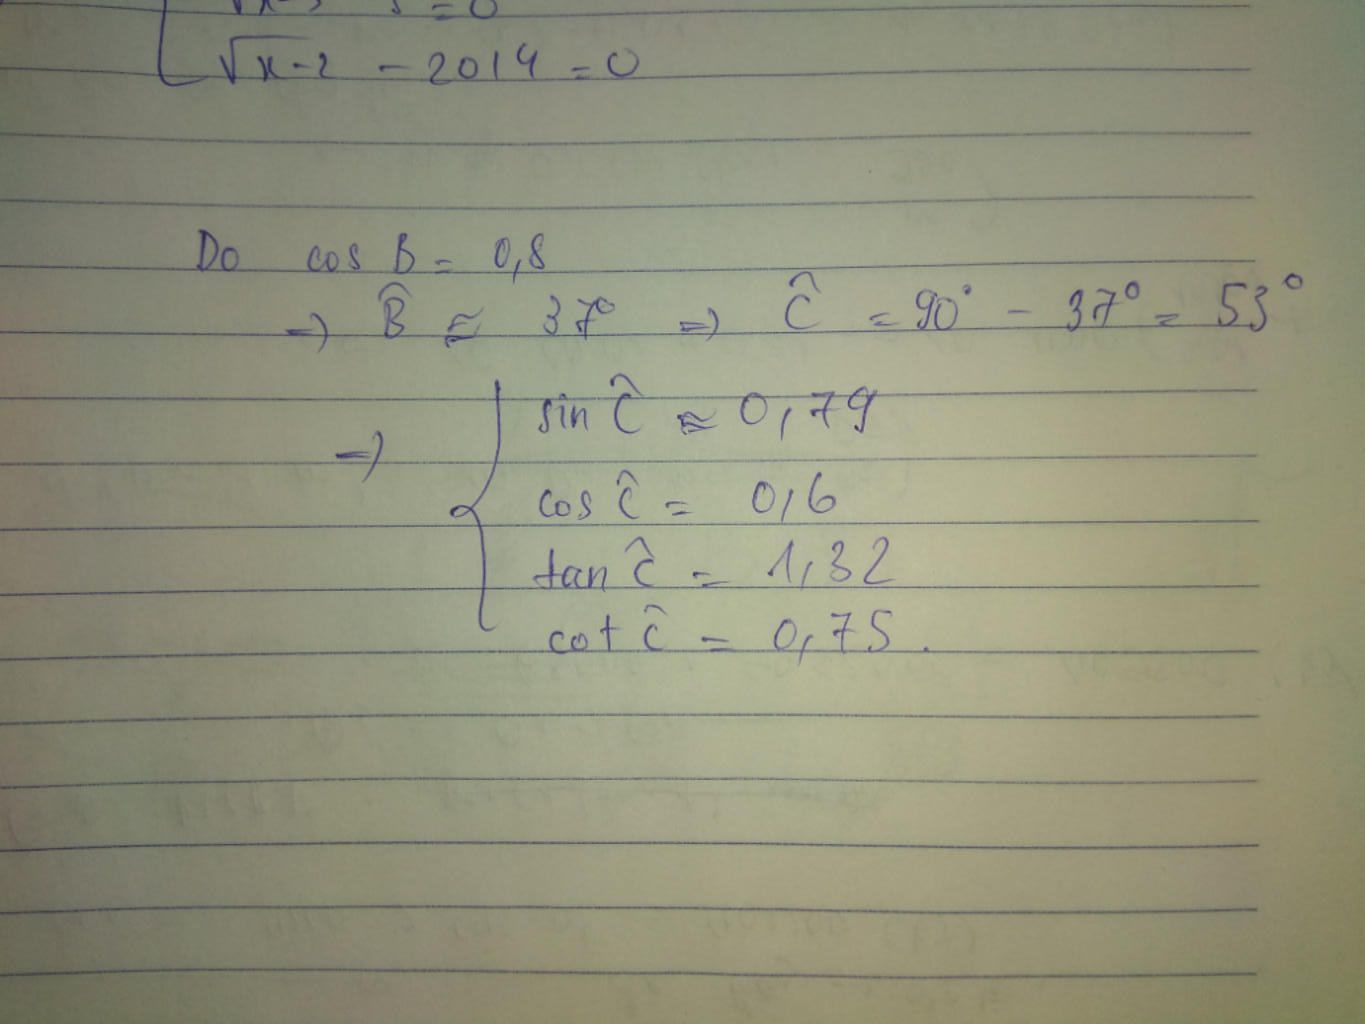 = 0
√x-2 - 2014 = 0
Do cos B = 0,8
=) B̂ ≈ 37° =) Ĉ = 90° - 37° = 53°
sin Ĉ ≈ 0,79
=)
cos Ĉ = 0,6
tan Ĉ = 1,32
cot Ĉ = 0,75.